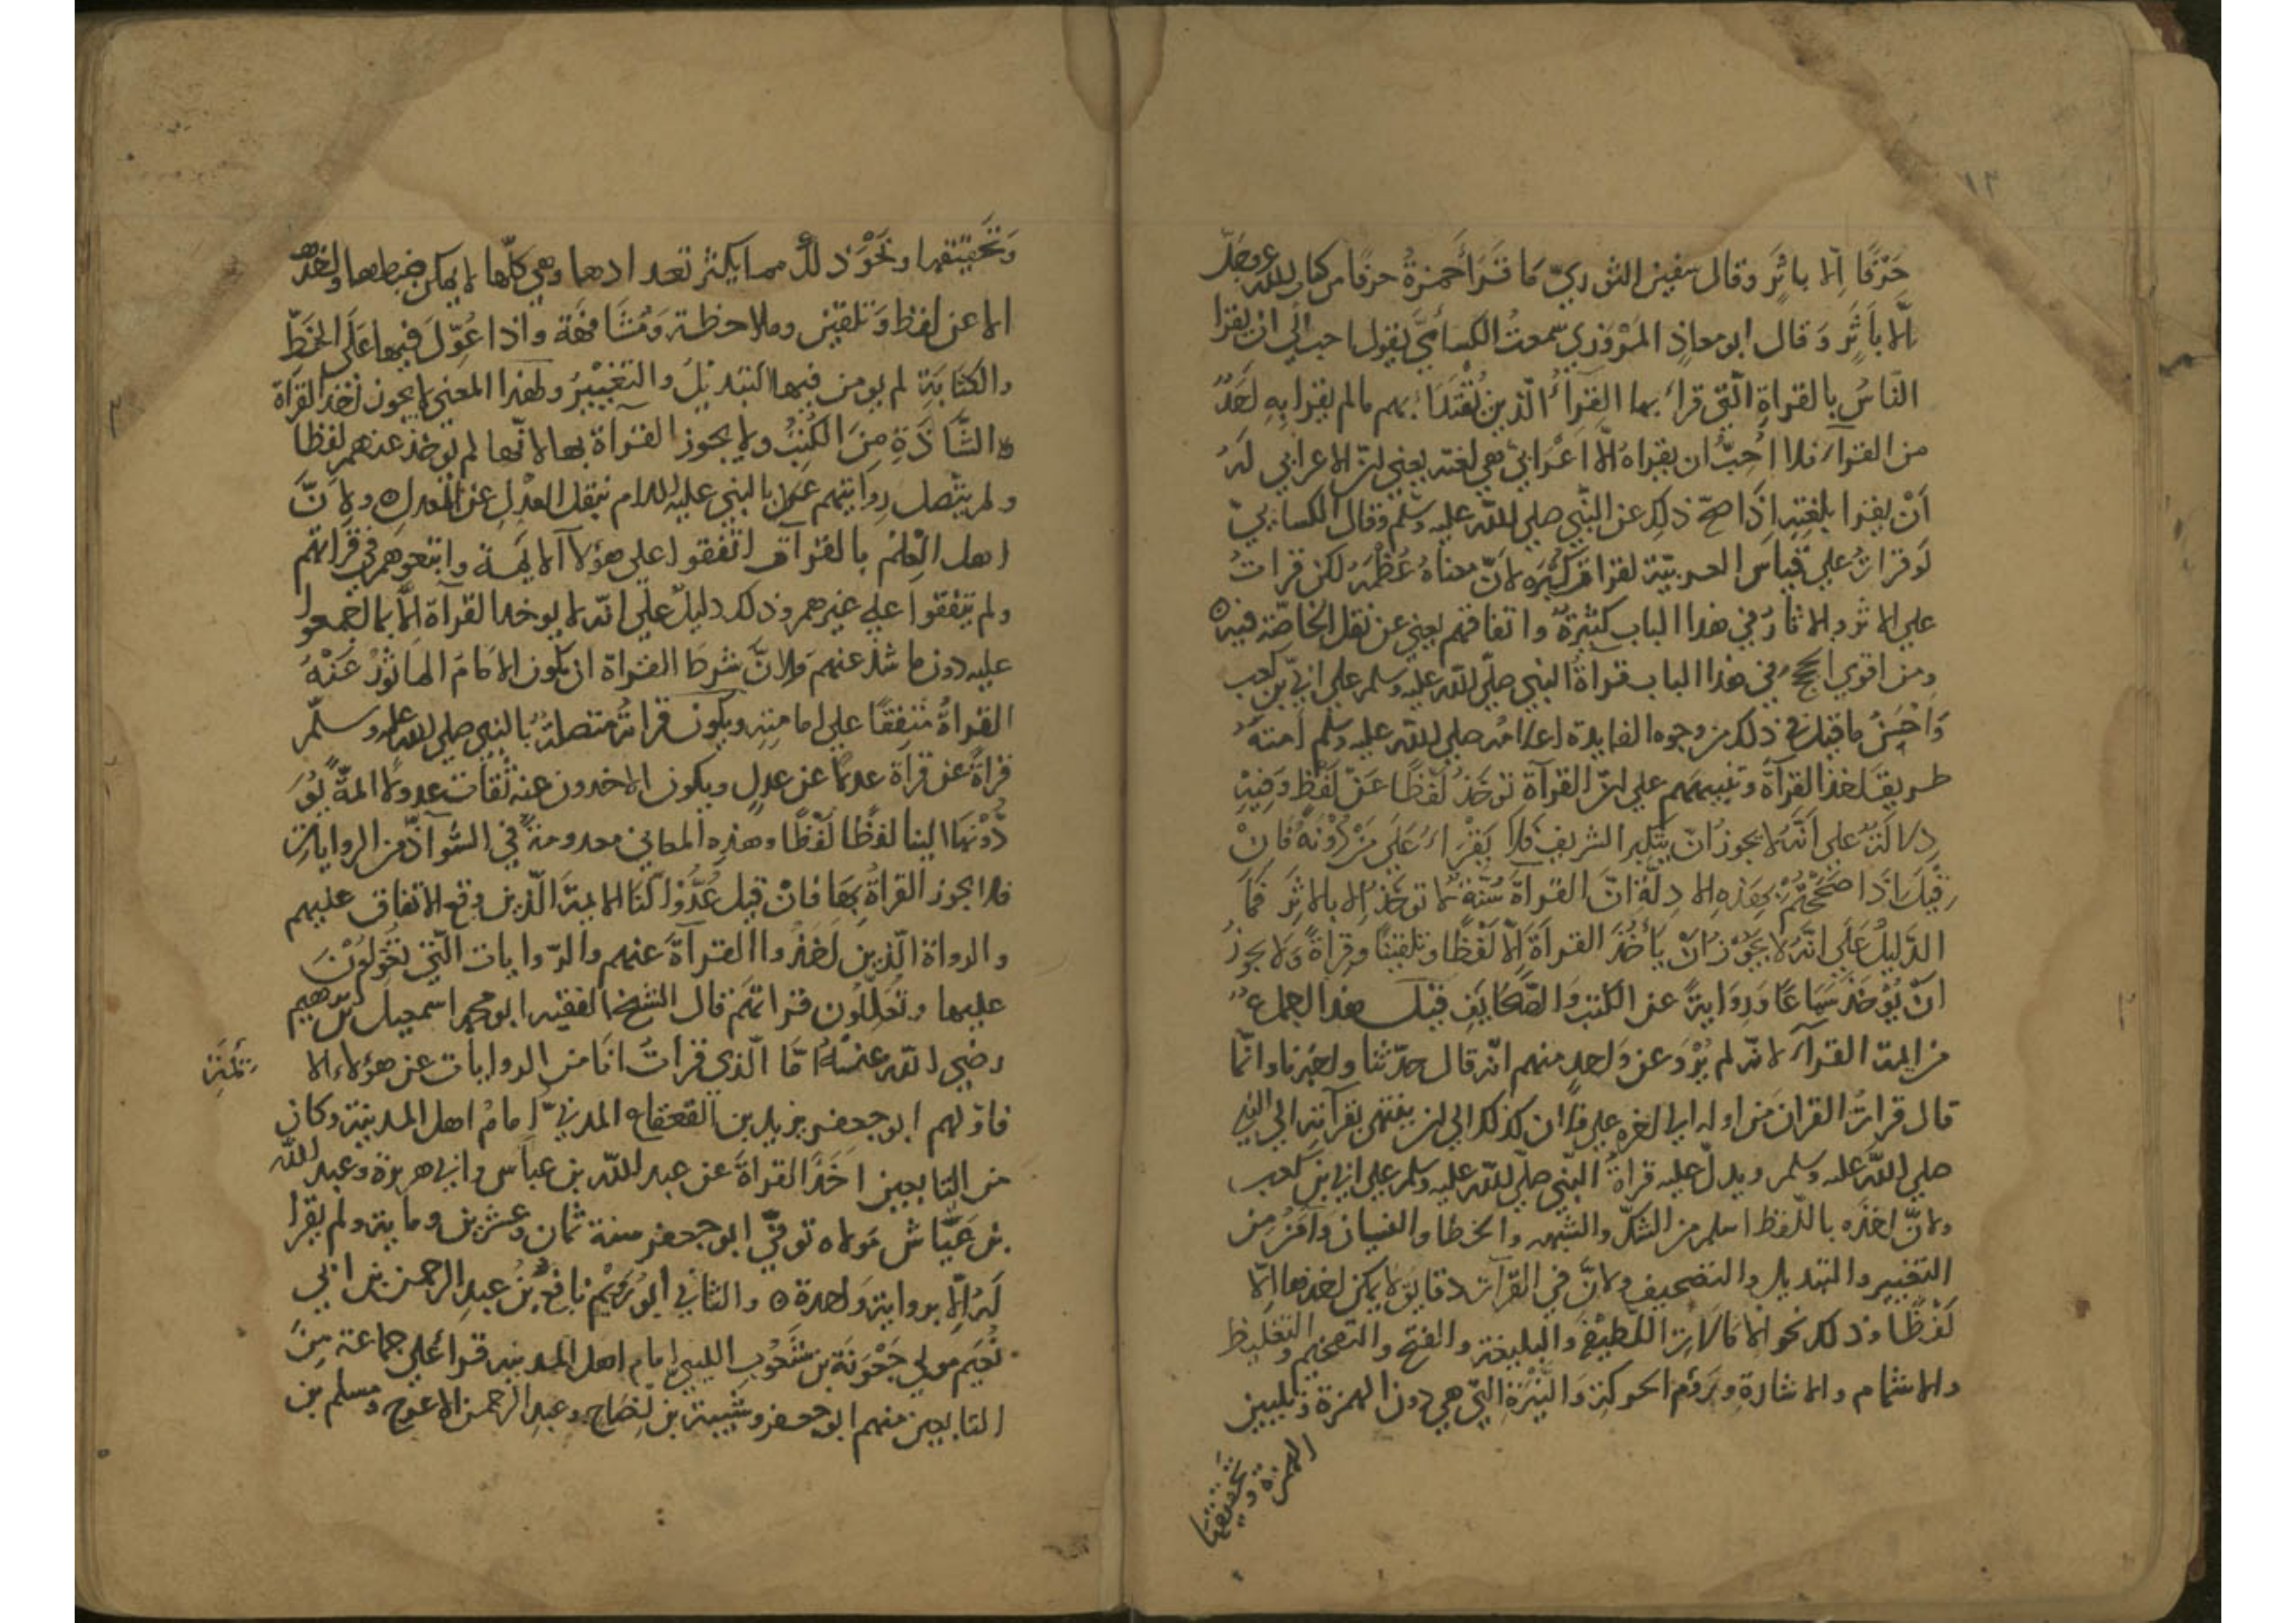 ١٣
حَرْفًا اِلّا باثَرٍ وقال سفين الثوريّ مَا قَرَأَ حَمزةُ حرفًا من كتاب الله عز وجلّ
اِلّا باَثَرٍ وَقال ابو معاذٍ المَرْوَزي سمعتُ الكسائيَّ يقول احب اليّ ان يقرا
النّاسُ بالقراةِ الّتي قراَ بها القرآءُ الّذين يُقْتَدَاء بهم مالم يقرا بِهِ اَحَدٌ
من القراء فلا اُحِبُّ ان يقراهُ الّا اَعْرَابيّ هي لغته يعني انّ الاعرابي لهُ
اَنْ يقرا بلغتِهِ اِذَا صحّ ذلك عن النّبي صلي الله عليه وسلّم وقال الكسائيّ
لَو قراتُ علي قياس العربيّة لقرات كُبْرَه لانّ معناهُ عُظْمَهُ لكن قراتُ
علي الاثر والاثارُ في هذا الباب كثيرةٌ واتفاقهم يغني عن نقل الخاصّة فيه ه
ومن اقوي الحجج في هذا الباب قراةُ النبي صلّي الله عليه وسلم علي ابيّ بن كعب
وَاحْسَنُ ما قيل في ذلك من وجوه الفايدة اعلامُه صلي الله عليه وسلّم امتهُ
طريقَ اخذ القرآةِ وتنبيههم علي انّ القرآةَ توخَذُ لَفْظًا عَنْ لَفْظٍ وَفيهِ
دلالَةٌ علي اَنَّهُ لا يجوز اَنْ يتكبر الشريف فلا يَقْرَاءُ عَلَي مَنْ دُوْنَهُ فَانْ
قِيْلَ اذَا صَحَّحْتُمْ بهَذِهِ الادِلّةِ انّ القراَةَ سُنّة لا توخَذُ اِلا بالاثَرِ فَمَا
الدَّلِيلُ عَلَي انّهُ لا يَجُوْزُ انْ يَأْخُذَ القراَةَ اِلّا لَفْظًا وتلقينًا وَقِراَةً وَلا يجوزُ
انْ يُوْخَذَ سَمَاعًا وَرِوَايَةً عن الكتب وَالصَّحَايفِ قيل هذا اجماعٌ
من ايمة القرآء لانّه لم يُرْوَ عن وَاحدٍ منهم انّه قال حدّثنا واخبرنا وانّما
قال قراتُ القران من اوله الي اخره علي فلان كذلك الي ان ينتهي بقرآته الي النبي
صلي الله عليه وسلم ويدلّ عليه قراةُ النّبيّ صلّي الله عليه وسلم علي ابي بن كعب
ولانّ اخذه باللّفظ اسلم من الشكّ والشبهه والخطا والنسيان وَآمَنُ مِن
التغيير والتبديل والتصحيف ولانّ في القرآت دقايق لا يمكن اخذها اِلّا
لَفْظًا وذلك نحو الامالات اللّطيفة والبليغة والفتح والتّفخيم والتغليظ
والاشمام والاشارةِ وَرَوْمِ الحركة وَالنّبْرَةِ الّتي هي دون الهمزة وتليين
الهمزة وَتحقيقها
وَتَحْقِيْقِها ونَحْوِ ذلك مما يكثر تعدادها وهي كلّها لا يمكن ضبطها واخذها
الا عن لفظ وَتلقين وملاحظة وَمُشَافهَة واذا عُوّلَ فيها عَلَي الخَطِّ
والكتابَةِ لم يومن فيها التبديلُ والتغييرُ ولهذا المعني لا يجوز اخذ القرآة
الشّاذّةِ مِنَ الكُتُبُ ولا يجوز القرآة بها لانّها لم توخذ عنهم لفظًا
ولم يتّصل روايتهم بالنبي عليه السلام بنقل العَدْلِ عن العدل ه ولانَّ
اهل الْعِلْم بالقرآت اتّفقوا علي هؤلآ الايمة واتبعوهم في قراتهم
ولم يتفقوا علي غيرهم وذلك دليلٌ علي انّه لا يوخذ القرآة الّا بما اجمعوا
عليه دون ما شذ عنهم ولانَّ شرطَ القراة ان يكون الامَامَ الماثُوْر عَنْهُ
القراةُ متفقًا علي امامته ويكون قراتُهُ متصلةً بالنبي صلي الله عليه وسلّم
قراةً عن قراَة عدلًا عن عدلٍ ويكون الاخذون عنه ثقات عدولًا ايمّةً
الينا لفظًا لَفْظًا وهذهِ المعاني معدومَةٌ في الشّواذّ من الرواياتِ
فلا يجوز القراةُ بِهَا فانْ قيل عُدُّوْا لنَا الايمةَ الّذين وقع الاتفاق عليهم
والرواةَ الّذين اَخَذُوا القرآةَ عنهم والرّوايات الّتي تُعَوِّلُوْنَ
عليها وتُعَلِّلُون قراتهم قال الشيخ الفقيه ابو محمد اسمعيل بن ابرهيم
رضي الله عنهُ امّا الّذي قراتُ انا من الروايات عن هؤلاء الا
يمّة
فاوّلهم ابو جعفر يزيد بن القعقاع المدنيّ امامُ اهل المدينة وكان
من التابعين اخَذَ القراةَ عن عبد الله بن عباس وابي هريرة وعبد الله
بن عَيَّاش مَولاه توفّي ابو جعفر سنة ثمان وعشرين وماية ولم يُقرا
لهُ الّا بروايةٍ وَاحدة ه والثاني ابو رُوَيْمٍ نافع بنُ عبدِ الرحمن بن ابي
نُعَيم مولي جَعْوَنَة بن شَعُوبِ الليثي امام اهل المدينه قرا علي جماعة مِنَ
التابعين منهم ابو جعفر وشيبة بن نِصَاح وعبد الرحمن الاعرج ومسلم بن